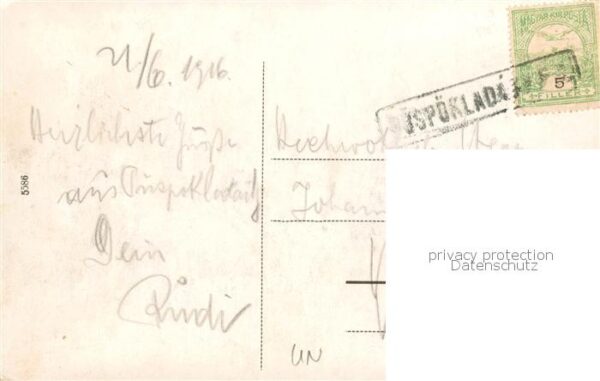 21/6. 1916.
Herzlichste Grüße
aus Püspökladány
Dein
Rudi
5586
MAGYAR KIR. POSTA
5
FILLER
PÜSPÖKLADÁNY
Johann
privacy protection
Datenschutz
UN